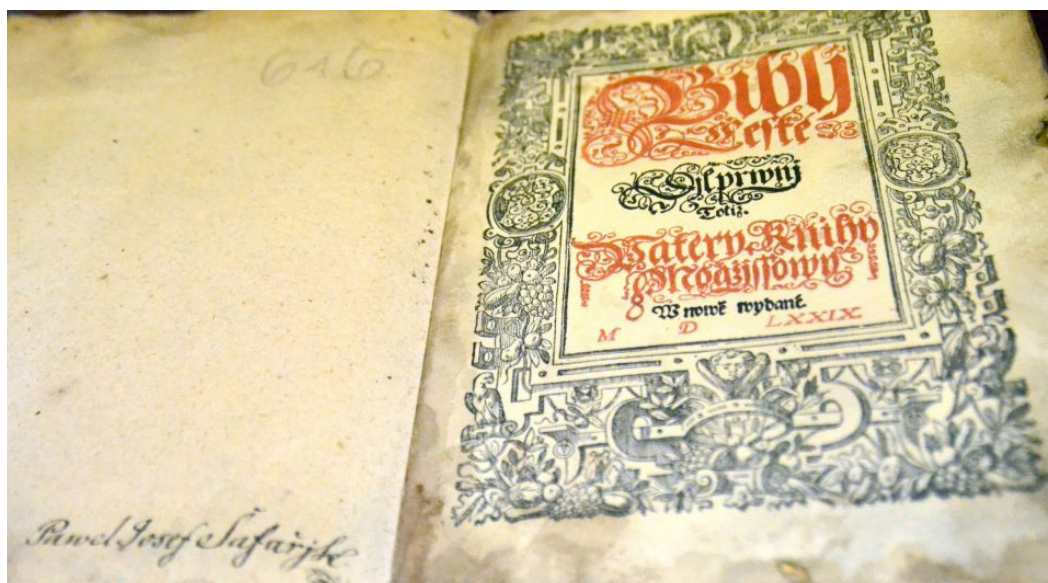 616
Pawel Josef Šafařjk
Biblj
Cżeské
Djl prwnij
Totiž.
Patery Knihy
Mogžissowy
W nowě wydané.
M D LXXIX.